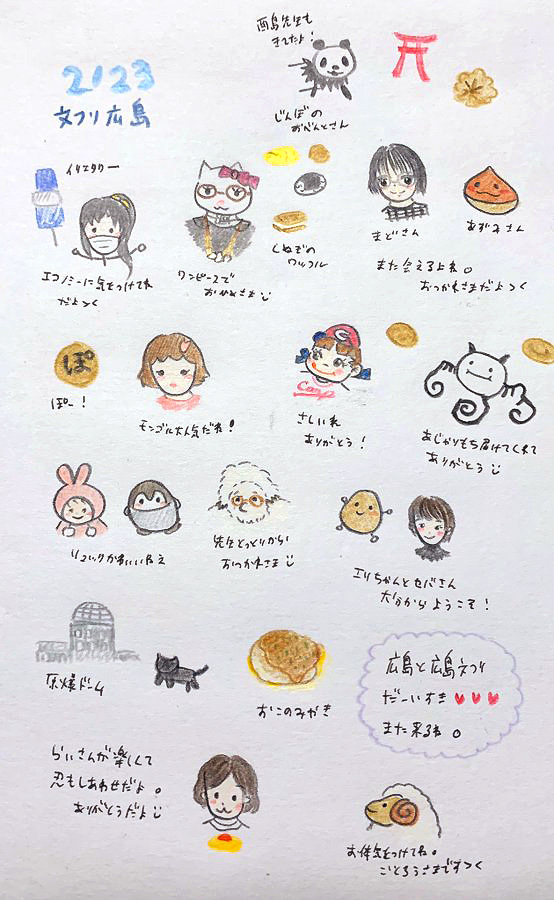 酉島先生も
きてたよ！
2023
文フリ広島
じんぼの
おべんとさん
イリエタワー
エコノミーに気をつけてね
だよ
ワンピースで
おかめさま
くぬぎの
ワッフル
まどさん
また会えるよね。
おつかれさまだよ
あずみさん
ぽ
ぽー！
モンゴル大人気だね！
C
Carp
さしいれ
ありがとう！
あじかりもち届けてくれて
ありがとう
リュックかわいいねえ
先生とっとりから
おつかれさま
エリちゃんとセバさん
大分からようこそ！
原爆ドーム
おこのみやき
広島と広島文フリ
だーいすき
また来るね。
らいさんが楽しくて
忍もしあわせだよ。
ありがとうだよ
お体気をつけてね。
ごくろうさまです